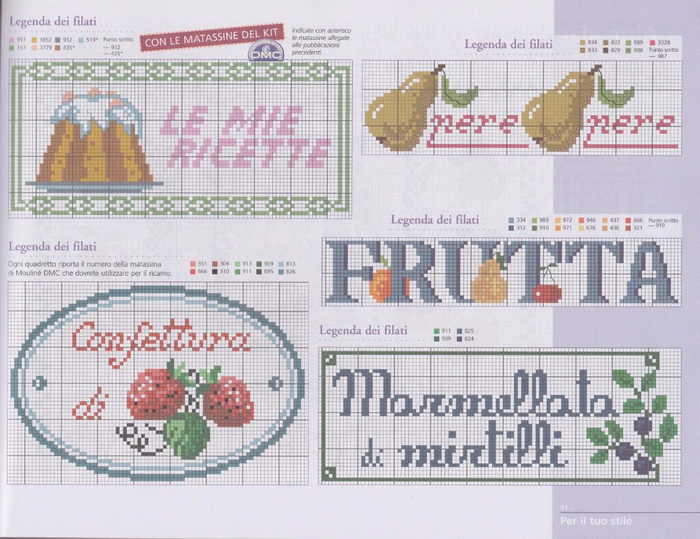 Legenda dei filati
957 3852 932 519* Punto scritto
163 3779 435* — 932
— 435*
CON LE MATASSINE DEL KIT
DMC
Indicate con asterisco
le matassine allegate
alle pubblicazioni
precedenti.
LE MIE
RICETTE
Legenda dei filati
834 832 989 3328
833 829 988 Punto scritto
— 987
pere pere
Legenda dei filati
334 989 972 946 437 666 Punto scritto
312 910 971 676 436 321 — 310
FRUTTA
Legenda dei filati
Ogni quadretto riporta il numero della matassina
di Mouliné DMC che dovrete utilizzare per il ricamo.
351 304 913 909 813
666 310 911 895 826
Confettura
di
Legenda dei filati
911 825
909 824
Marmellata
di mirtilli
81
Per il tuo stile